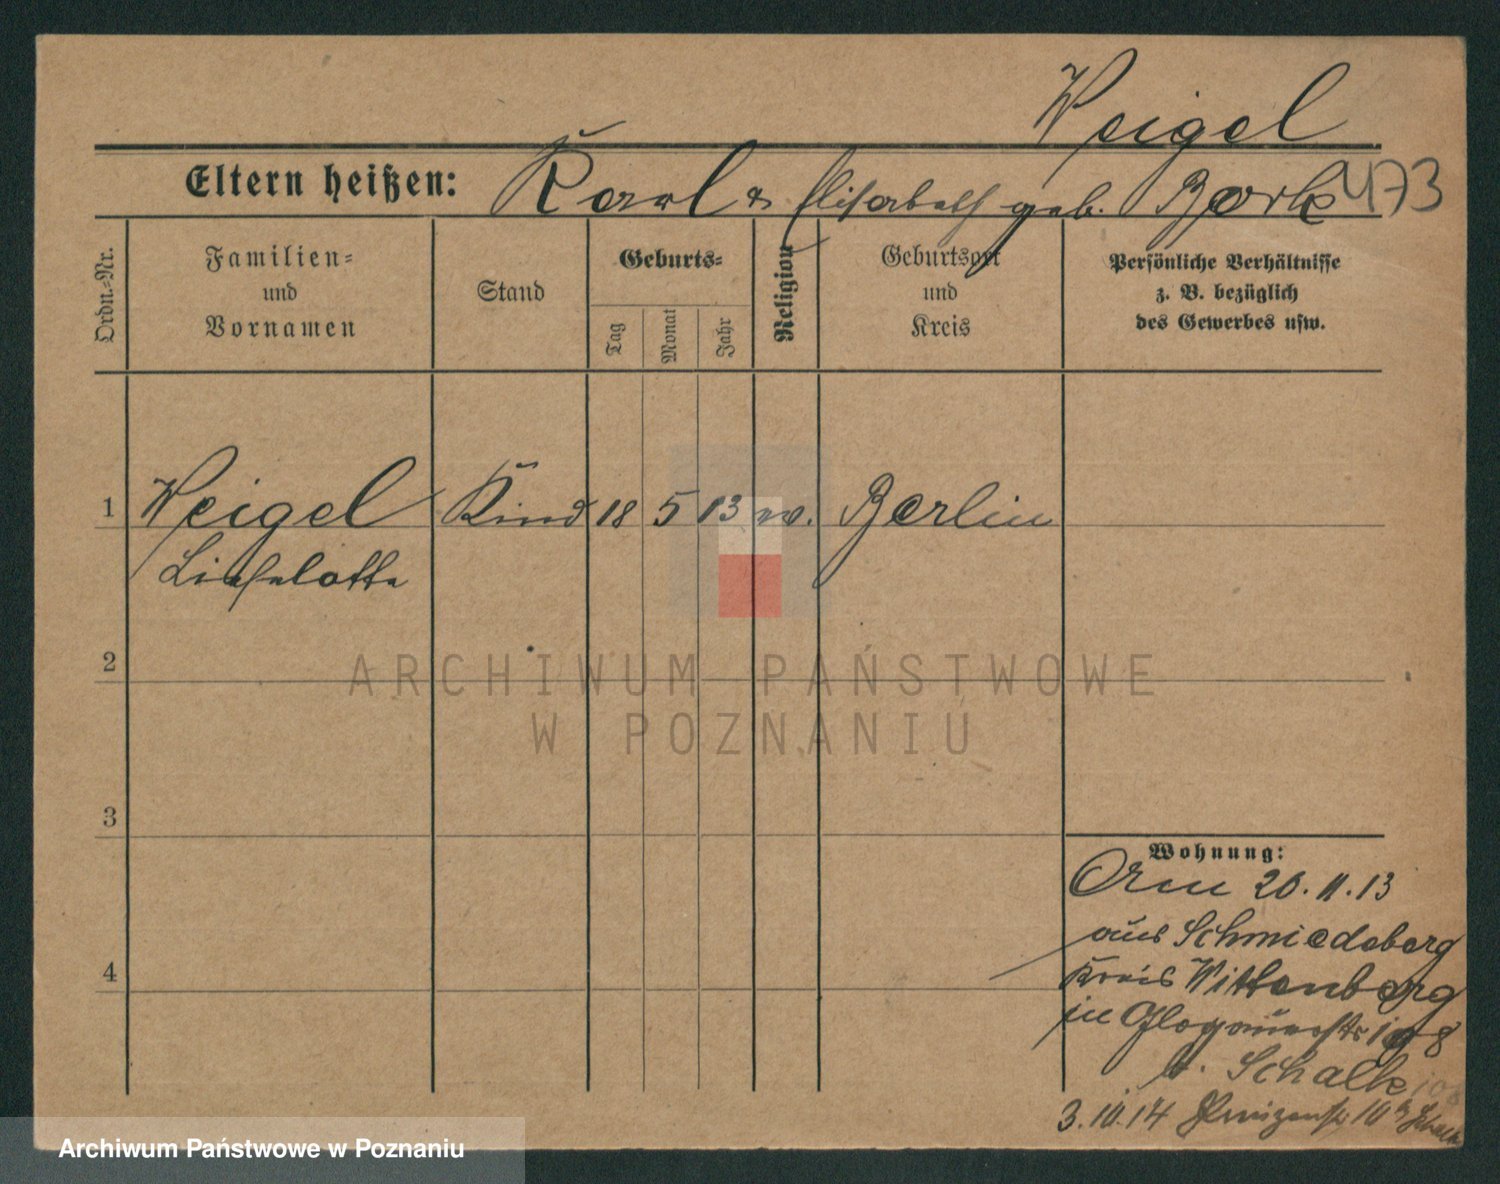 Weigel
Eltern heißen: Karl & Elisabeth geb. Bork 473
Ordn.=Nr.
Familien=
und
Vornamen
Stand
Geburts=
Tag
Monat
Jahr
Religion
Geburtsort
und
Kreis
Persönliche Verhältnisse
z. B. bezüglich
des Gewerbes usw.
1 Weigel Kind 18 5 13 ev. Berlin
Lieselotte
2
3
4
Wohnung:
20.11.13
aus Schmiedeberg
Kreis Wittenberg
in Glogauerstr. 108
b. Schalk
3.10.14 10 b Schalk
ARCHIWUM PAŃSTWOWE
W POZNANIU
Archiwum Państwowe w Poznaniu